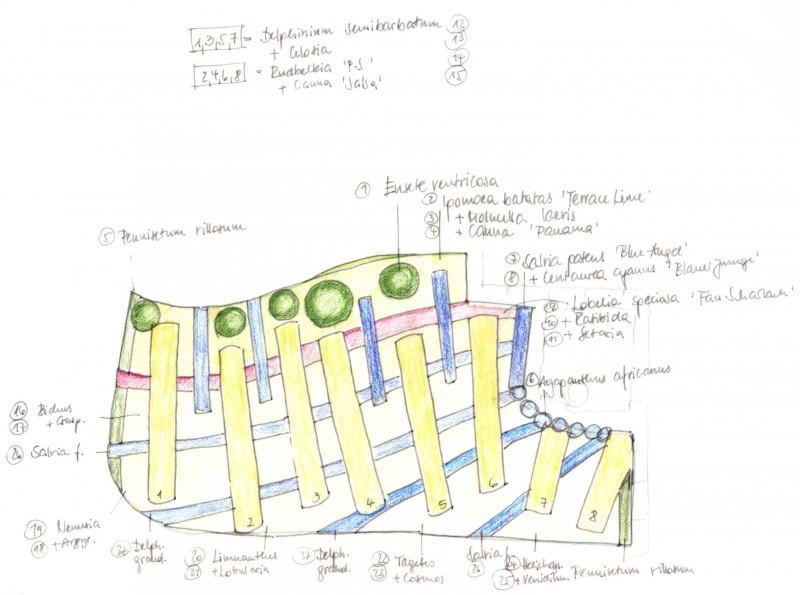 1,3,5,7 = Delphinium semibarbatum 12
+ Celosia 13
2,4,6,8 = Rudbeckia 'P.S' 14
+ Canna 'Salsa' 15
1 Ensete ventricosa
2 Ipomoea batatas 'Terrace Lime'
3 + Molucella laevis
4 + Canna 'Panama'
5 Pennisetum villosum
7 Salvia patens 'Blue Angel'
8 + Centaurea cyanus 'Blauer Junge'
9 Lobelia speciosa 'Fan Scharlach'
10 + Ratibida
11 + Setaria
6 Agapanthus africanus
16 Bidens
17 + Crasp.
26 Salvia f.
1
2
3
4
5
6
7
8
19 Nemesia
18 + Argyr.
27 Delph. grand.
20 Limnanthus
21 + Lobularia
27 Delph. grand.
22 Tagetes
23 + Cosmos
Salvia f.
26
24 Helichr.
25 + Venidium
Pennisetum villosum